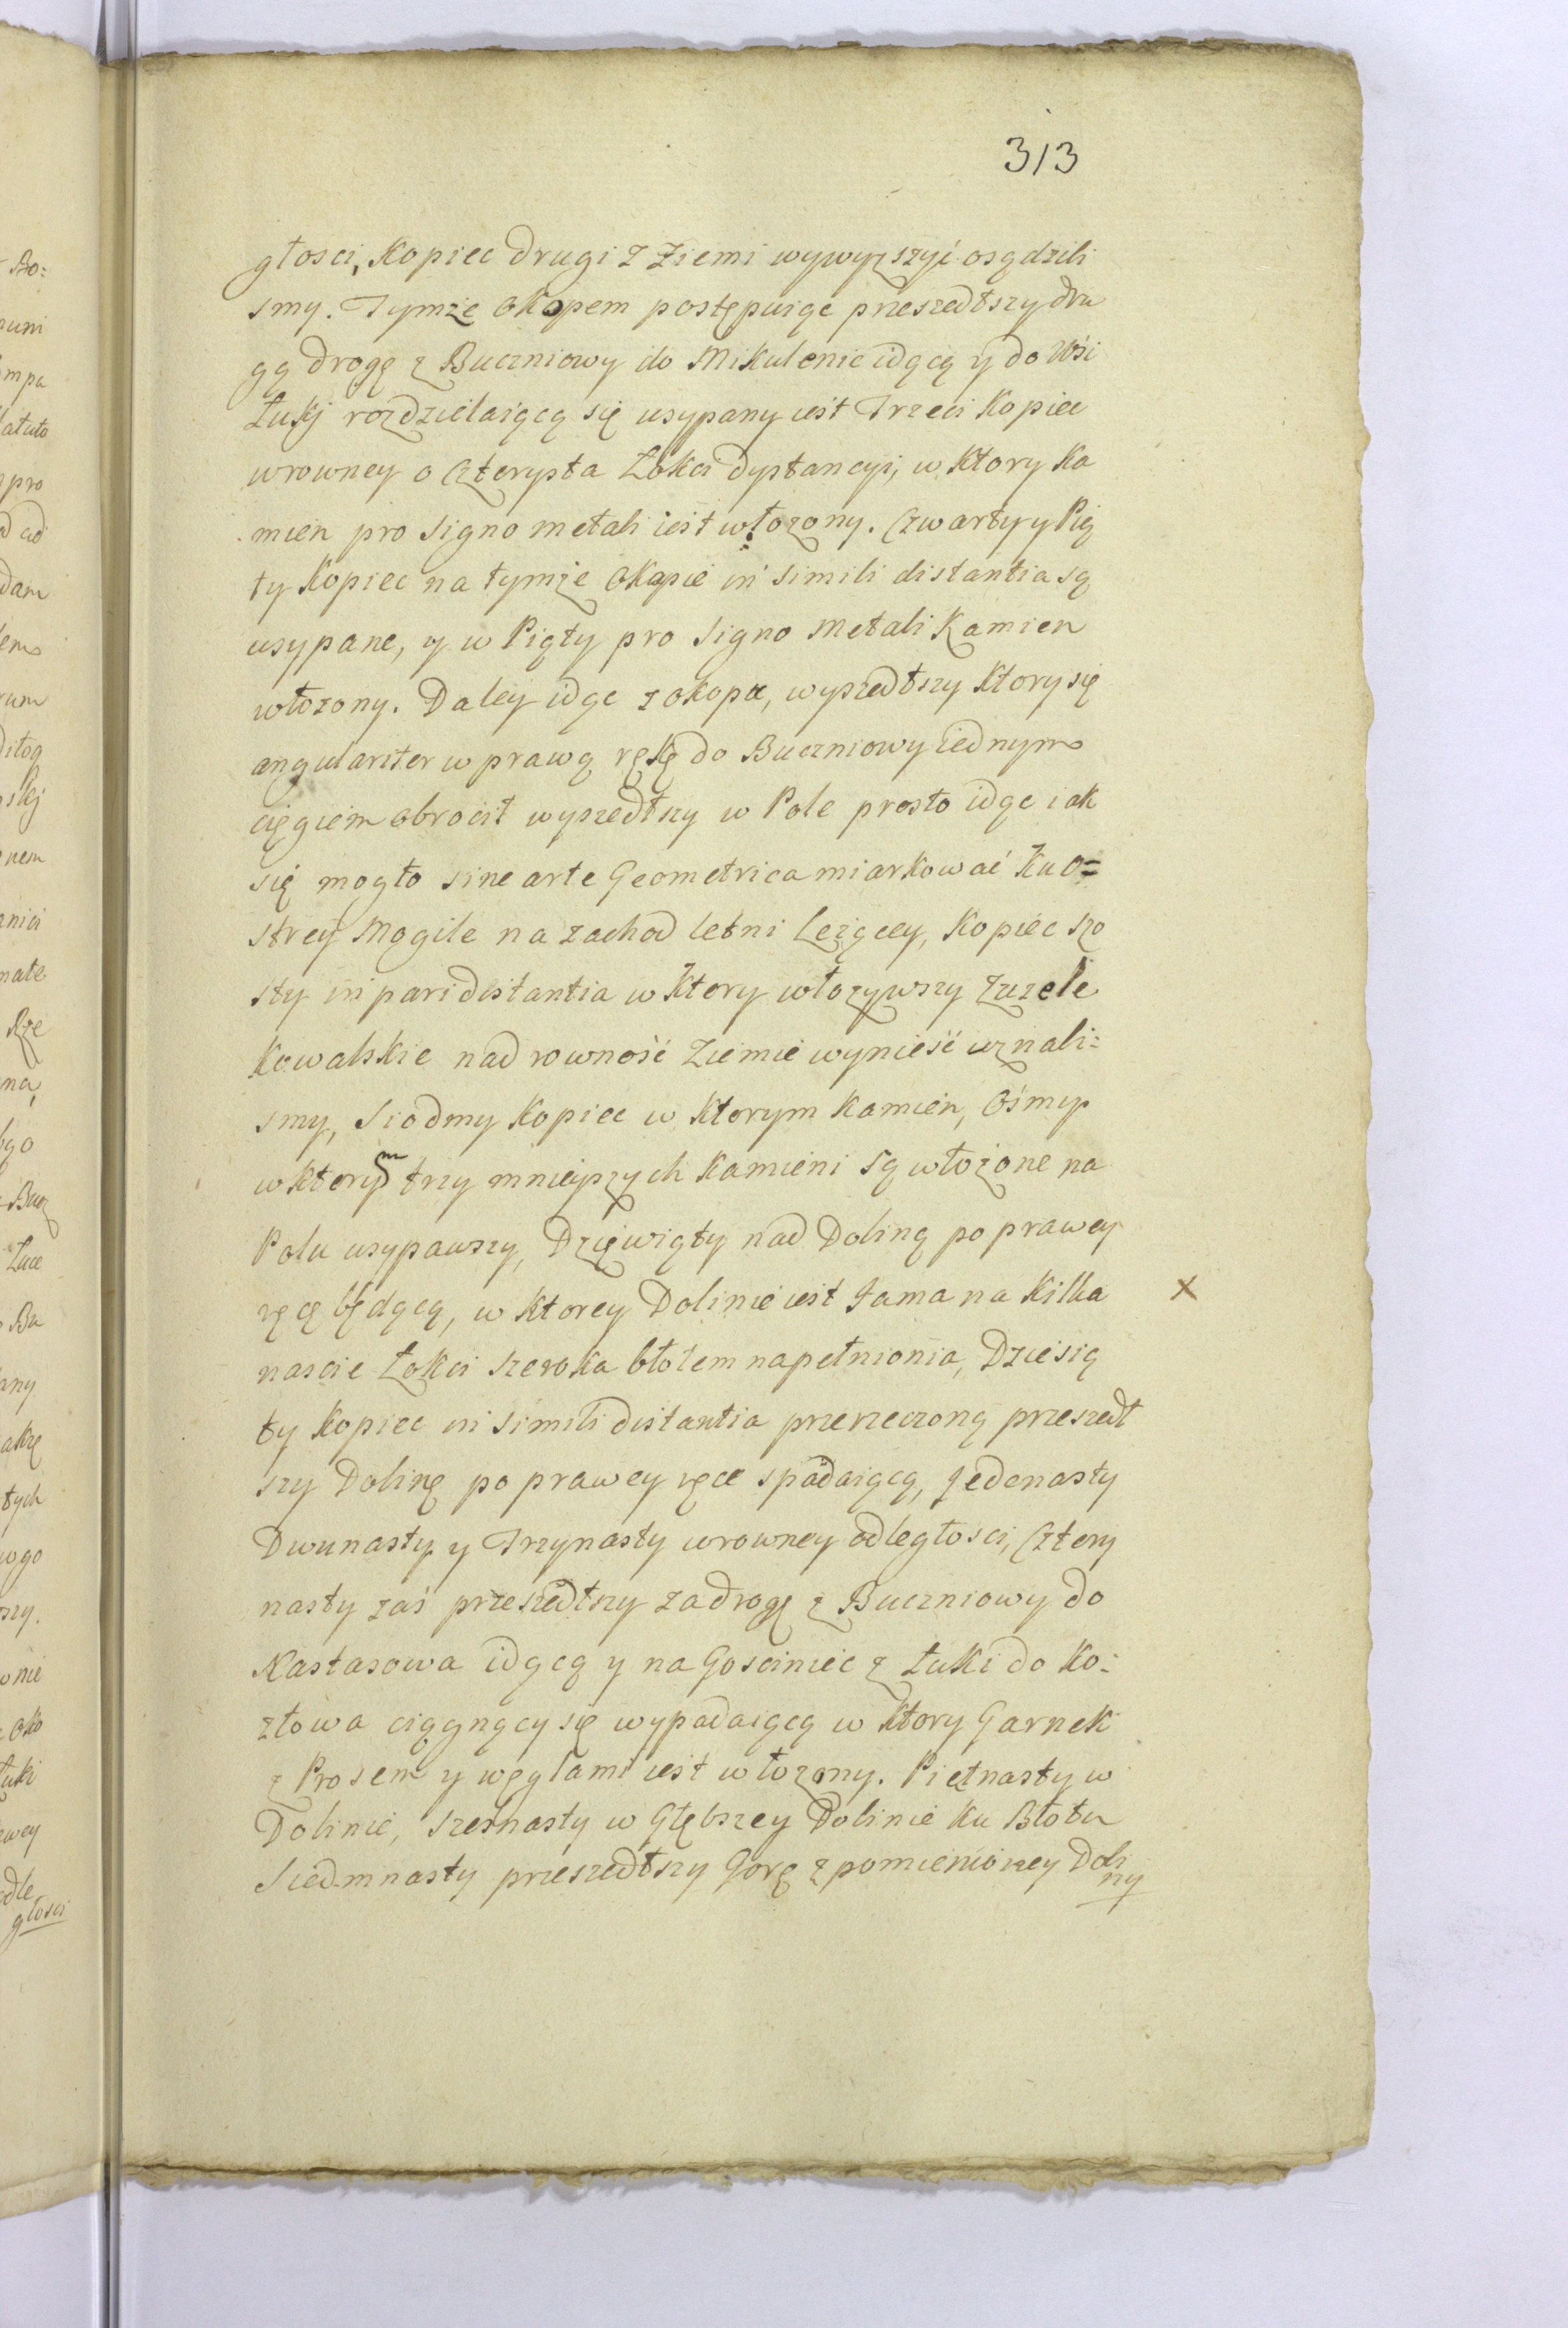 313
głosci, Kopiec drugi z Ziemi wywyższyć osądzili
smy. Tymże Okopem postępuiąc przeszedłszy dru
gą drogę z Buczniowy do Mikulenic idącą y do Wsi
Łuki rozdzielaiącą się usypany iest Trzeci Kopiec
wrowney o czterysta Łokci dystancyi, w Ktory Ka
mien pro Signo metali iest włozony. Czwarty y Pią
ty Kopiec na tymże Okopie in simili distantia są
usypane, y w Piąty pro Signo Metali Kamien
włozony. Daley idąc z okopu, wyszedłszy Ktory się
angulariter w prawą rękę do Buczniowy iednym
cięgiem obrocił wyszedłszy w Pole prosto idąc iak
się mogło sine arte Geometrica miarkować Ku O=
strey Mogile na zachod letni Leżącey, Kopiec szo
sty in pari distantia w Ktory włozywszy Zuzele
Kowalskie nad rowność Ziemie wynieść uznali=
smy, Siodmy Kopiec w Ktorym Kamien, Osmy
w Ktorym trzy mnieyszych Kamieni są włożone na
Polu usypawszy, Dziewiąty nad Doliną po prawey
ręcę będącą, w Ktorey Dolinie iest Jama na Kilka
nascie Łokci szeroka błotem napełniona, Dziesią
ty Kopiec in simili distantia przerzeczoną przeszedł
szy Dolinę po prawey ręce spadaiącą, Jedenasty
Dwunasty y Trzynasty wrowney odległosci, Cztery
nasty zaś przeszedłszy za drogę z Buczniowy do
Nastasowa idącą y na Gosciniec z Łuki do Ko=
złowa ciągnący się wypadaiącą w Ktory Garnek
z Prosem y węglami iest włozony. Piętnasty w
Dolinie, Szesnasty w Głębszey Dolinie Ku Błotu
Siedmnasty przeszedłszy Gorę z pomienioney Doli
ny
x